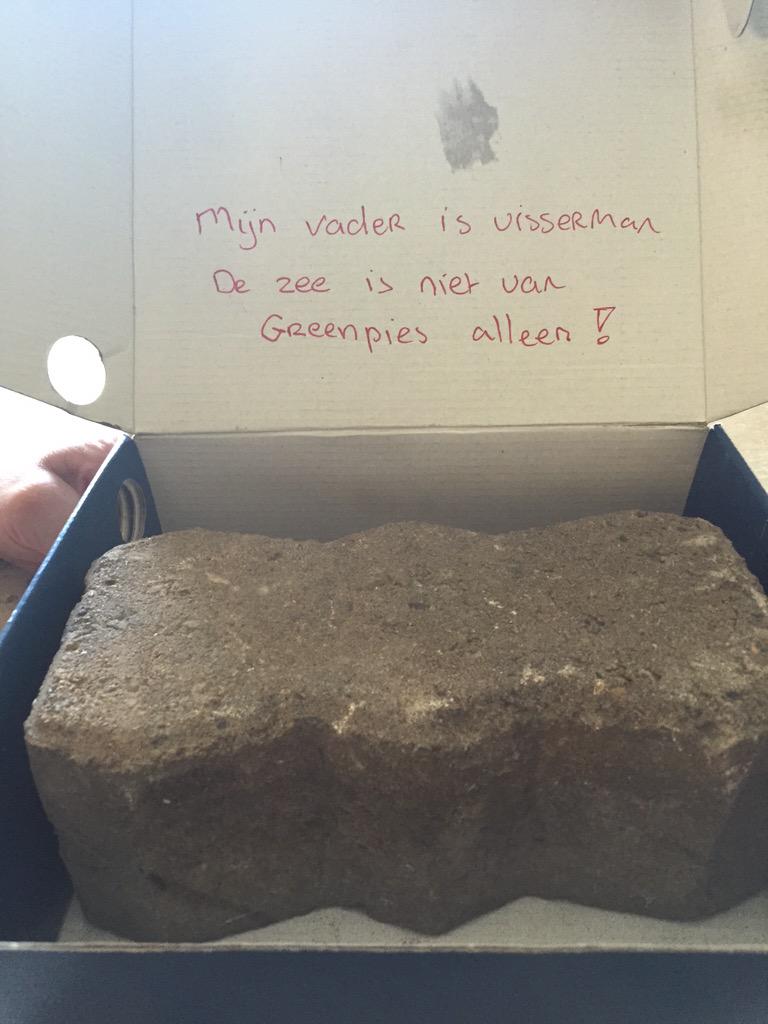 Mijn vader is visserman
De zee is niet van
Greenpies alleen!